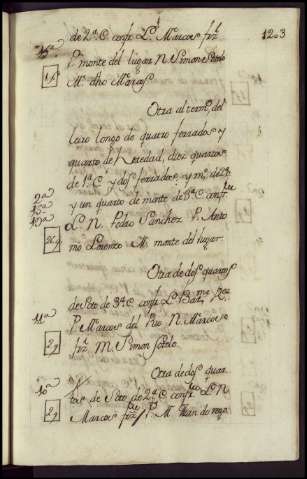 1203
de 2ª C. confr. L. Marcos frz
P. monte del lugar N. Simon Sotelo
M. dho Marcos
Otra al term.º del
leiro longo de quatro ferrados y
quarto de heredad, diez quartos
de 1ª C. y dos ferrados, y m.º de 2ª
y un quarto de monte de 3ª C. confr.
L. N. Pedro Sanchez P. Anto
nio Lorenzo M. monte del lugar.
2ª
15ª
19ª
Otra de dos quartos
de Soto de 3ª C. confr. L. Bar.me
P. Marcos del Rio N. Marcos
frz M. Simon Sotelo
11ª
Otra de dos quar
tos de Soto de 2ª C. confr. L. N.
Marcos frz P. M. Juan do rego
10ª